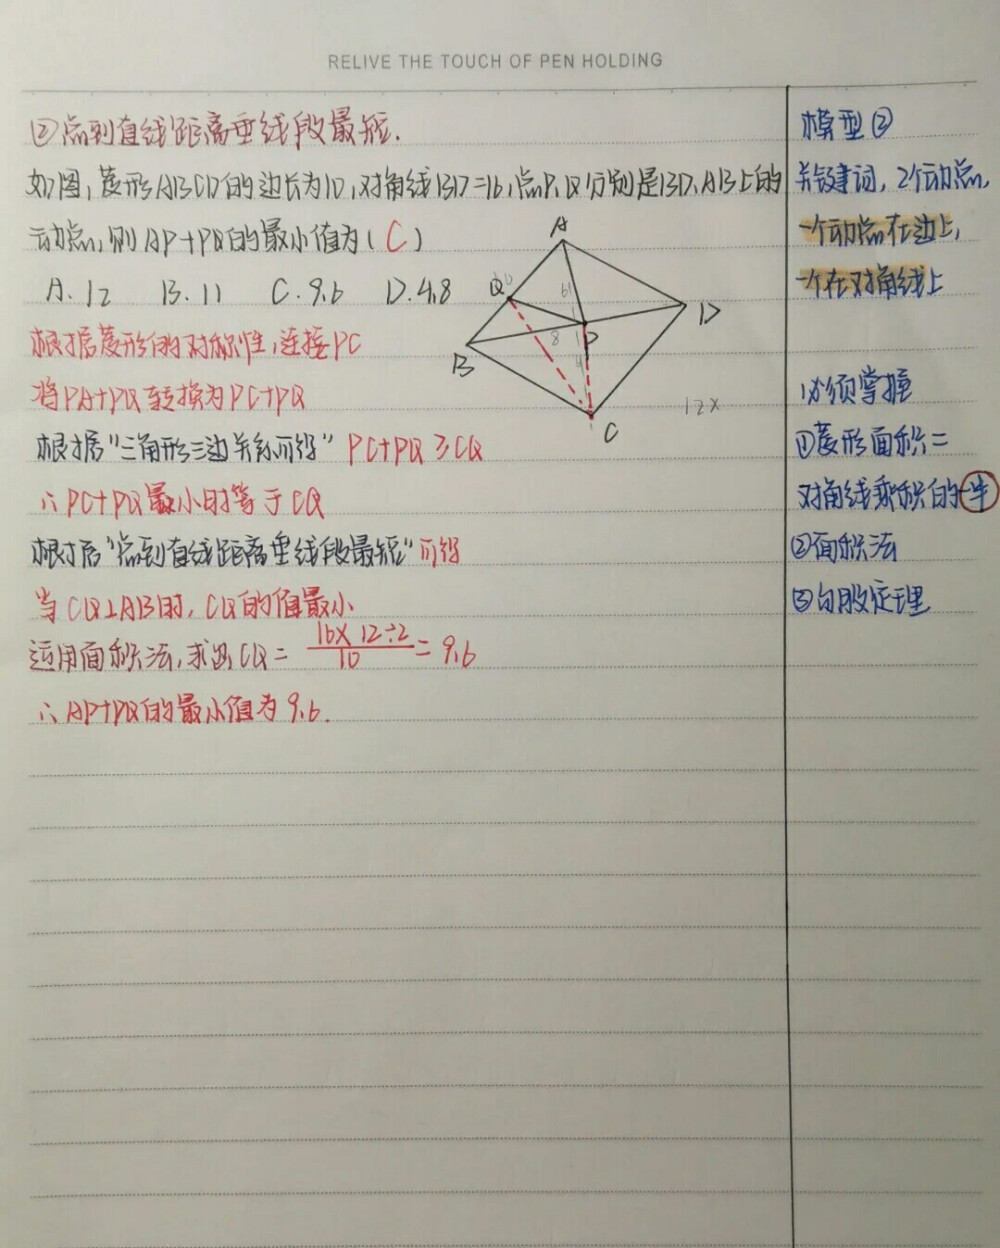 RELIVE THE TOUCH OF PEN HOLDING
②点到直线距离垂线段最短.
如图,菱形ABCD的边长为10,对角线BD=16,点P、Q分别是BD、AB上的
动点,则AP+PQ的最小值为(C)
A.12 B.11 C.9.6 D.4.8
根据菱形的对称性,连接PC
将PA+PQ转换为PC+PQ
根据"三角形三边关系可得" PC+PQ≥CQ
∴PC+PQ最小时等于CQ
根据"点到直线距离垂线段最短"可得
当CQ⊥AB时,CQ的值最小
运用面积法,求出CQ=16×12÷2/10=9.6
∴AP+PQ的最小值为9.6.
A
Q
6
D
8
P
B
C
12×
模型②
关键词,2个动点,
一个动点在边上,
一个在对角线上
必须掌握
①菱形面积=
对角线乘积的一半
②面积法
③勾股定理